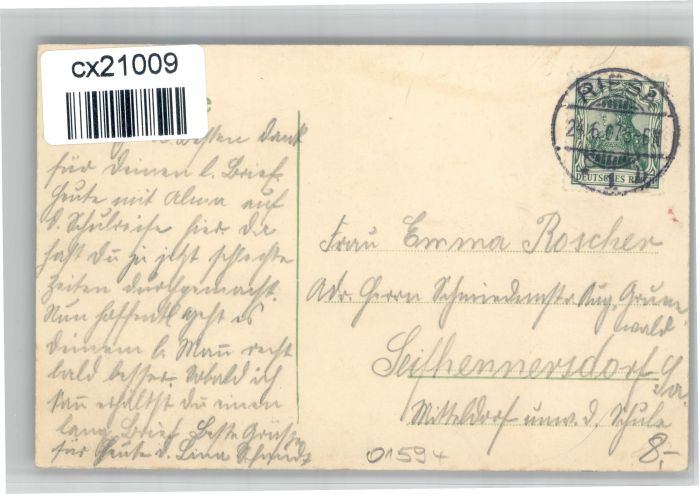 cx21009
RIESA
24.6.07.
DEUTSCHES REICH
besten Dank
für deinen l. Brief.
Heute mit Alma auf
d. Schulreise hier. Da
hast Du ja jetzt schlechte
Zeiten durchgemacht.
Nun hoffentl. geht es
deinem l. Mann recht
bald besser. Sobald ich
kan erhältst du einen
lang. Brief. Beste Grüße
für heute d. Lina
Frau Emma Roscher
Adr. Herrn Schmiedemstr. Aug. Grun-
wald
Seifhennersdorf i. Sa.
Mitteldorf unw. d. Schule
01594
8,-